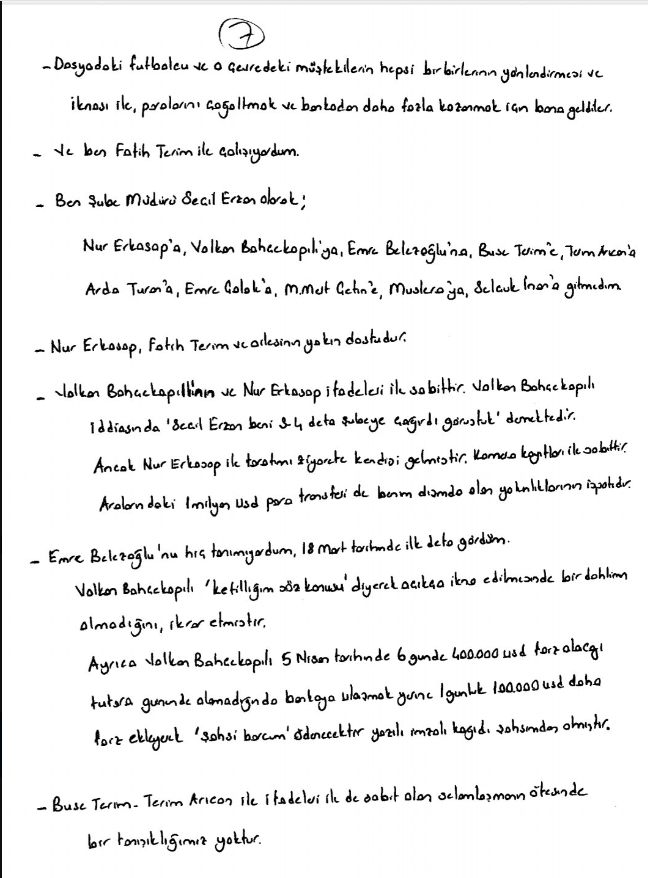 7
- Dosyadaki futbolcu ve o çevredeki müştekilerin hepsi birbirlerinin yönlendirmesi ve
iknası ile, paralarını çoğaltmak ve bankadan daha fazla kazanmak için bana geldiler.
- Ve ben Fatih Terim ile çalışıyordum.
- Ben Şube Müdürü Seçil Erzan olarak;
Nur Erkasap'a, Volkan Bahçekapılı'ya, Emre Belezoğlu'na, Buse Terim'e, Terim Arıcan'a
Arda Turan'a, Emre Çolak'a, M.Mert Çetin'e, Muslera'ya, Selçuk İnan'a gitmedim
- Nur Erkasap, Fatih Terim ve ailesinin yakın dostudur.
- Volkan Bahçekapılı'nın ve Nur Erkasap ifadeleri ile sabittir. Volkan Bahçekapılı
iddiasında 'Seçil Erzan beni 3-4 defa şubeye çağırdı görüştük' demektedir.
Ancak Nur Erkasap ile tarafımı ziyarete kendisi gelmiştir. Kamera kayıtları ile sabittir.
Aralarındaki 1 milyon usd para transferi de benim dışımda olan yakınlıklarının ispatıdır.
- Emre Belezoğlu'nu hiç tanımıyordum, 18 Mart tarihinde ilk defa gördüm.
Volkan Bahçekapılı 'kefilliğim söz konusu' diyerek açıkça ikna edilmesinde bir dahlim
olmadığını, ikrar etmiştir.
Ayrıca Volkan Bahçekapılı 5 Nisan tarihinde 6 günde 400.000 usd farz alacağı
tutarı gününde alamadığında bankaya ulaşmak yerine 1 günlük 100.000 usd daha
farz ekleyerek 'şahsi borcum' ödenecektir yazılı imzalı kağıdı şahsımdan almıştır.
- Buse Terim - Terim Arıcan ile ifadeleri ile de sabit olan selamlaşmanın ötesinde
bir tanışıklığımız yoktur.